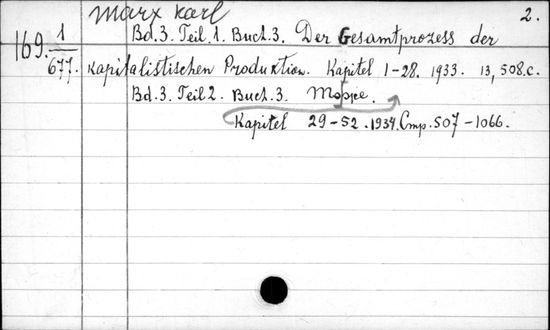 Marx Karl 2.
169. 1/677. Bd.3. Teil.1. Buch.3. Der Gesamtprozess der
kapitalistischen Produktion. Kapitel 1-28. 1933. 13, 508.c.
Bd.3. Teil 2. Buch.3. Mоже.
Kapitel 29-52. 1934. Cmp. 507-1066.